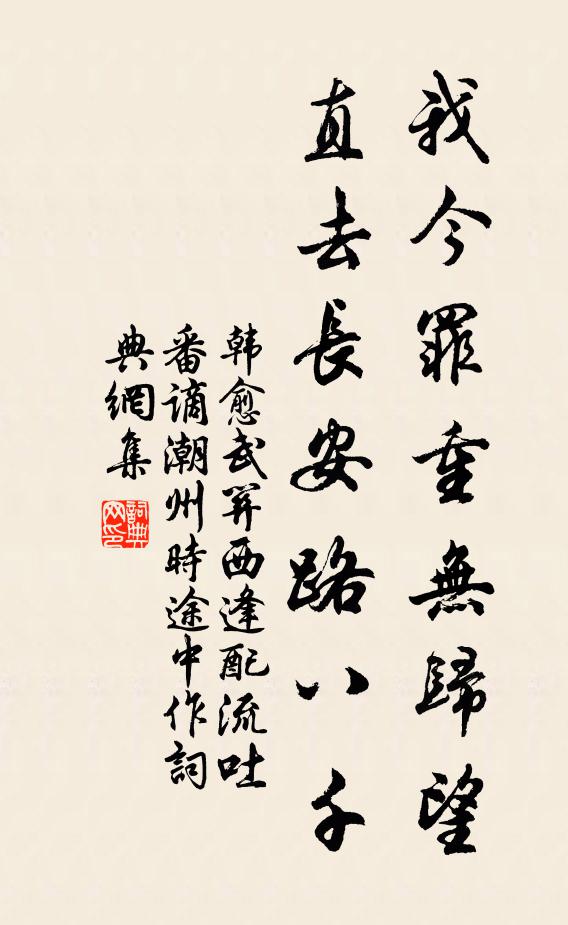 我今罪重無歸望
直去長安路八千
韩愈武關西逢配流吐
番谪潮州時途中作詞
典網集
詞典
网印